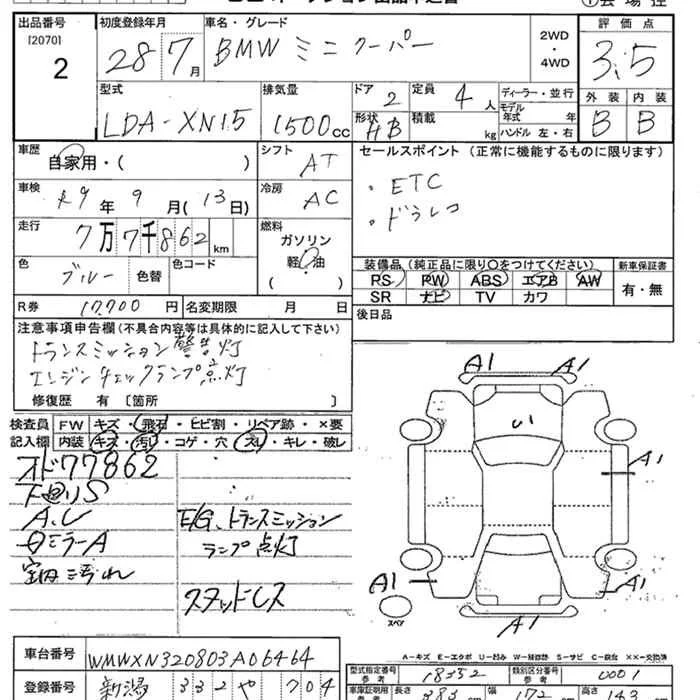 出品番号
[2070]
2
初度登録年月
28 7月
車名・グレード
BMW ミニクーパー
2WD
・
4WD
評価点
3.5
外装 内装
B B
型式
LDA-XN15
排気量
1500cc
ドア 2
形状 HB
定員 4人
積載 kg
ディーラー・並行
モデル年式 年
ハンドル 左・右
車歴
自家用・( )
シフト AT
車検
R9年 9月(13日)
冷房 AC
走行
7万7千862km
燃料
ガソリン
軽油
( )
セールスポイント (正常に機能するものに限ります)
・ETC
・ドラレコ
色 ブルー 色替
色コード
装備品(純正品に限り〇をつけてください)
PS PW ABS エアB AW
SR ナビ TV カワ
新車保証書
有・無
R券 17,700円
名変期限 月 日
後日品
注意事項申告欄(不具合内容等は具体的に記入して下さい)
トランスミッション警告灯
エンジンチェックランプ点灯
修復歴 有 [箇所 ]
検査員記入欄
FW キズ・飛石・ヒビ割・リペア跡・×要
内装 キズ・汚れ・コゲ・穴・スレ・キレ・破レ
オド77862
下回りS
A.C
ミラーA
室内汚れ
E/G、トランスミッション
ランプ点灯
スタッドレス
A1
A1
A1
A1
A1
スペア
A-キズ E-エクボ U-凹み W-補修跡 S-サビ C-腐食 ××-交換済
車台番号
WMWXN320803A06464
登録番号
新潟 332 や 704
型式指定番号
参考
18352
類別区分番号
参考
0001
車庫証明用
参考
長さ 383cm
幅 172cm
高さ 143